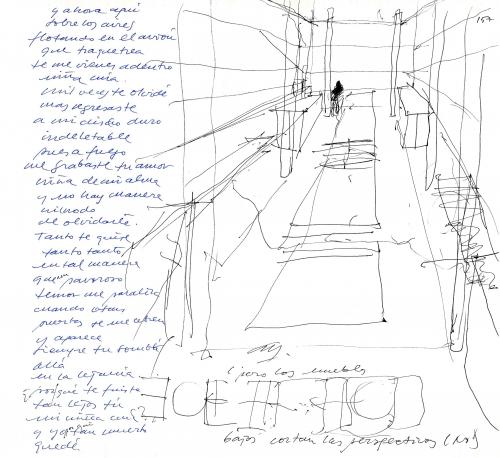 y ahora aquí
sobre los aires
flotando en el avión
que traquetrea
te me vienes adentro
niña mía.
mil veces te olvidé
mas regresaste
a mi disco duro
indeletable
pues a fuego
me grabaste tu amor
niña de mi alma
y no hay manera
ni modo
de olvidarte.
Tanto te quise
tanto tanto
en tal manera
que un pavoroso
temor me paraliza
cuando otras
puertas se me abren
y aparece
siempre tu sombra
allá
en la lejanía
¿porqué te fuiste
tan lejos tú
mi niña mía?
y yo tan muerto
quedé
157
(pero los muebles
bajos cortan las perspectivas